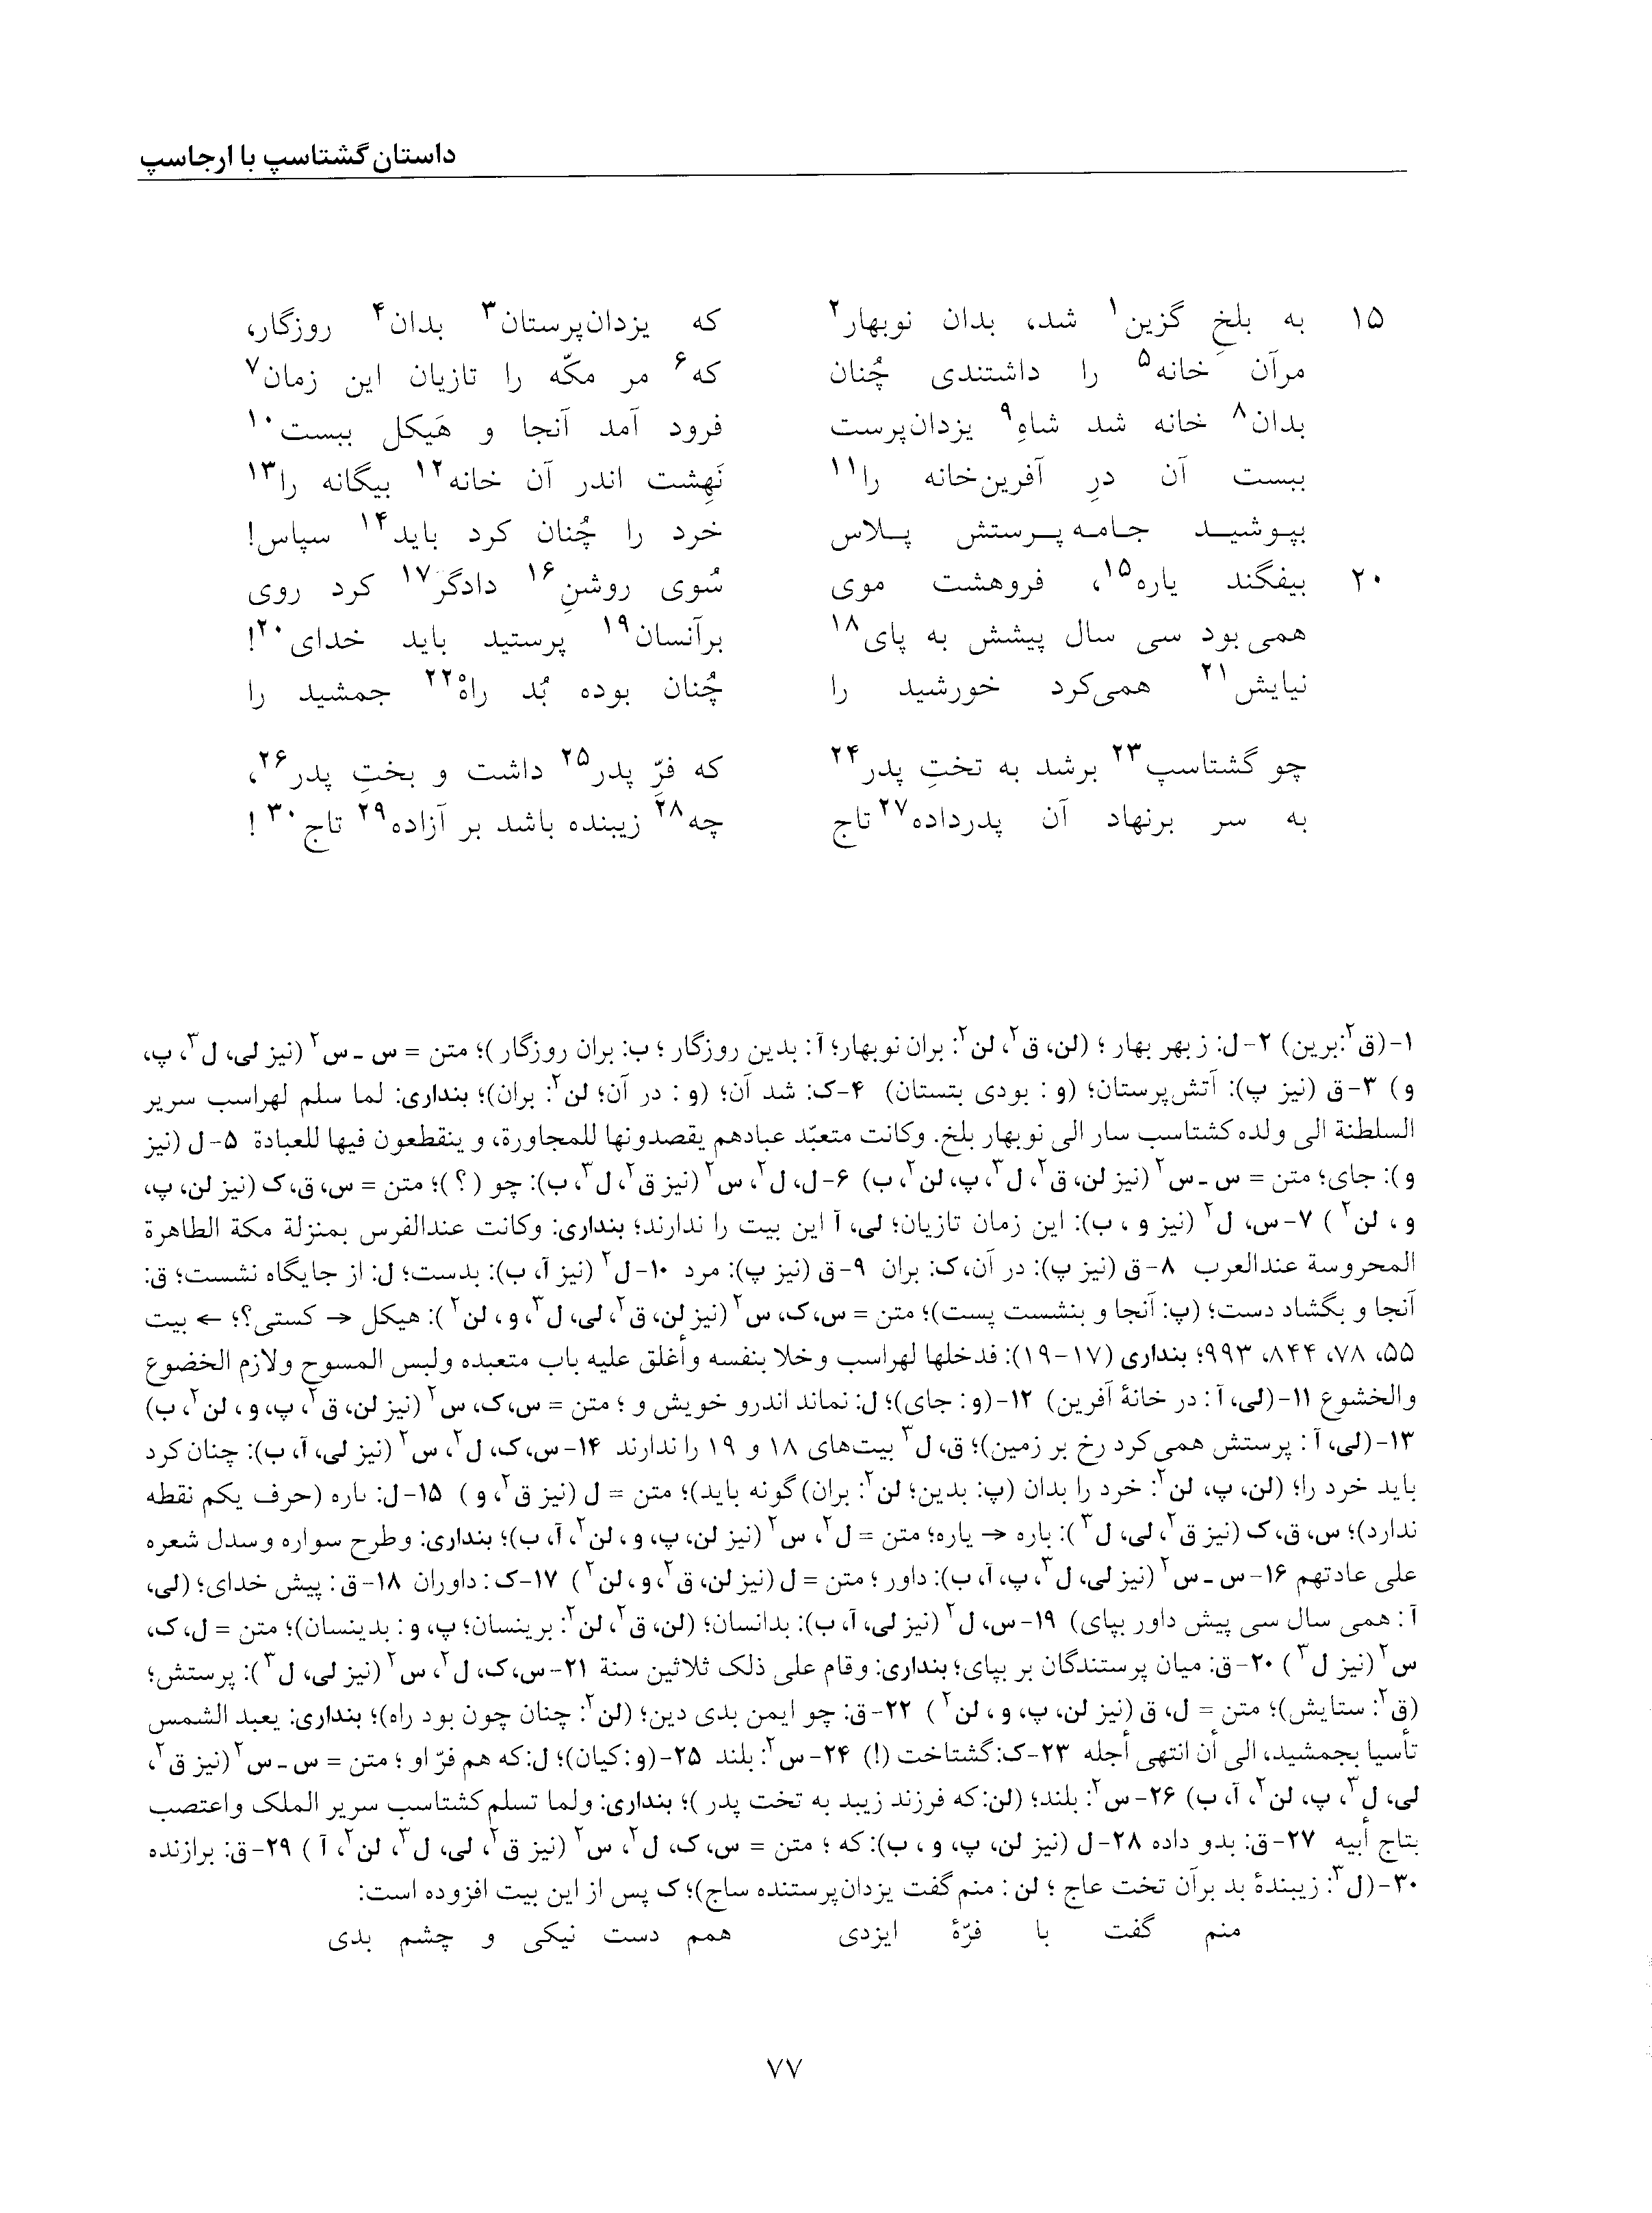 داستان گشتاسپ با ارجاسپ
۱۵ به بلخِ گزین۱ شد، بدان نوبهار۲ که یزدان‌پرستان۳ بدان۴ روزگار،
مرآن خانه۵ را داشتندی چُنان که۶ مر مکّه را تازیان این زمان۷
بدان۸ خانه شد شاهِ۹ یزدان‌پرست فرود آمد آنجا و هَیکل ببست۱۰
ببست آن درِ آفرین‌خانه را۱۱ نَهِشت اندر آن خانه۱۲ بیگانه را۱۳
بپوشید جامه‌پرستش پلاس خرد را چُنان کرد باید۱۴ سپاس!
۲۰ بیفگند یاره۱۵، فروهشت موی سُوی روشنِ۱۶ دادگر۱۷ کرد روی
همی‌بود سی سال پیشش به پای۱۸ برآنسان۱۹ پرستید باید خدای۲۰!
نیایش۲۱ همی‌کرد خورشید را چُنان بوده بُد راهْ۲۲ جمشید را
چو گشتاسپ۲۳ برشد به تختِ پدر۲۴ که فرِّ پدر۲۵ داشت و بختِ پدر۲۶،
به سر برنهاد آن پدرداده۲۷ تاج چه۲۸ زیبنده باشد بر آزاده۲۹ تاج۳۰!
۱-(ق۲:برین) ۲-ل: زبهر بهار؛ (لن، ق۲، لن۲: بران نوبهار؛ آ: بدین روزگار؛ ب: بران روزگار)؛ متن = س ـ س۲ (نیز لی، ل۳، پ،
و) ۳-ق (نیز پ): آتش‌پرستان؛ (و: بودی بتستان) ۴-ک: شد آن؛ (و: در آن؛ لن۲: بران)؛ بنداری: لما سلم لهراسب سریر
السلطنة الی ولده کشتاسب سار الی نوبهار بلخ. وکانت متعبّد عبادهم یقصدونها للمجاورة، و ینقطعون فیها للعبادة ۵-ل (نیز
و): جای؛ متن = س ـ س۲ (نیز لن، ق۲، ل۳، پ، لن۲، ب) ۶-ل، ل۲، س۲ (نیز ق۲، ل۳، ب): چو (؟)؛ متن = س، ق، ک (نیز لن، پ،
و، لن۲) ۷-س، ل۲ (نیز و، ب): این زمان تازیان؛ لی، آ این بیت را ندارند؛ بنداری: وکانت عندالفرس بمنزلة مکة الطاهرة
المحروسة عندالعرب ۸-ق (نیز پ): در آن، ک: بران ۹-ق (نیز پ): مرد ۱۰-ل۲ (نیز آ، ب): بدست؛ ل: از جایگاه نشست؛ ق:
آنجا و بگشاد دست؛ (پ: آنجا و بنشست پست)؛ متن = س، ک، س۲ (نیز لن، ق۲، لی، ل۳، و، لن۲): هیکل → کستی؟؛ ← بیت
۵۵، ۷۸، ۸۴۴، ۹۹۳؛ بنداری (۱۷-۱۹): فدخلها لهراسب وخلا بنفسه وأغلق علیه باب متعبده ولبس المسوح ولازم الخضوع
والخشوع ۱۱-(لی، آ: در خانهٔ آفرین) ۱۲-(و: جای)؛ ل: نماند اندرو خویش و؛ متن = س، ک، س۲ (نیز لن، ق۲، پ، و، لن۲، ب)
۱۳-(لی، آ: پرستش همی‌کرد رخ بر زمین)؛ ق، ل۳ بیت‌های ۱۸ و ۱۹ را ندارند ۱۴-س، ک، ل۲، س۲ (نیز لی، آ، ب): چنان کرد
باید خرد را؛ (لن، پ، لن۲: خرد را بدان (پ: بدین؛ لن۲: بران) گونه باید)؛ متن = ل (نیز ق۲، و) ۱۵-ل: ٮاره (حرف یکم نقطه
ندارد)؛ س، ق، ک (نیز ق۲، لی، ل۳): باره → یاره؛ متن = ل۲، س۲ (نیز لن، پ، و، لن۲، آ، ب)؛ بنداری: وطرح سواره وسدل شعره
علی عادتهم ۱۶-س ـ س۲ (نیز لی، ل۳، پ، آ، ب): داور؛ متن = ل (نیز لن، ق۲، و، لن۲) ۱۷-ک: داوران ۱۸-ق: پیش خدای؛ (لی،
آ: همی سال سی پیش داور بپای) ۱۹-س، ل۲ (نیز لی، آ، ب): بدانسان؛ (لن، ق۲، لن۲: برینسان؛ پ، و: بدینسان)؛ متن = ل، ک،
س۲ (نیز ل۳) ۲۰-ق: میان پرستندگان بر بپای؛ بنداری: وقام علی ذلک ثلاثین سنة ۲۱-س، ک، ل۲، س۲ (نیز لی، ل۳): پرستش؛
(ق۲: ستایش)؛ متن = ل، ق (نیز لن، پ، و، لن۲) ۲۲-ق: چو ایمن بدی دین؛ (لن۲: چنان چون بود راه)؛ بنداری: یعبد الشمس
تأسیا بجمشید، الی أن انتهی أجله ۲۳-ک: گشتاخت (!) ۲۴-س۲: بلند ۲۵-(و: کیان)؛ ل: که هم فرّ او؛ متن = س ـ س۲ (نیز ق۲،
لی، ل۳، پ، لن۲، آ، ب) ۲۶-س۲: بلند؛ (لن: که فرزند زیبد به تخت پدر)؛ بنداری: ولما تسلم کشتاسب سریر الملک واعتصب
بتاج أبیه ۲۷-ق: بدو داده ۲۸-ل (نیز لن، پ، و، ب): که؛ متن = س، ک، ل۲، س۲ (نیز ق۲، لی، ل۳، لن۲، آ) ۲۹-ق: برازنده
۳۰-(ل۳: زیبندهٔ بد برآن تخت عاج؛ لن: منم گفت یزدان‌پرستنده ساج)؛ ک پس از این بیت افزوده است:
منم گفت با فرّهٔ ایزدی همم دست نیکی و چشم بدی
۷۷